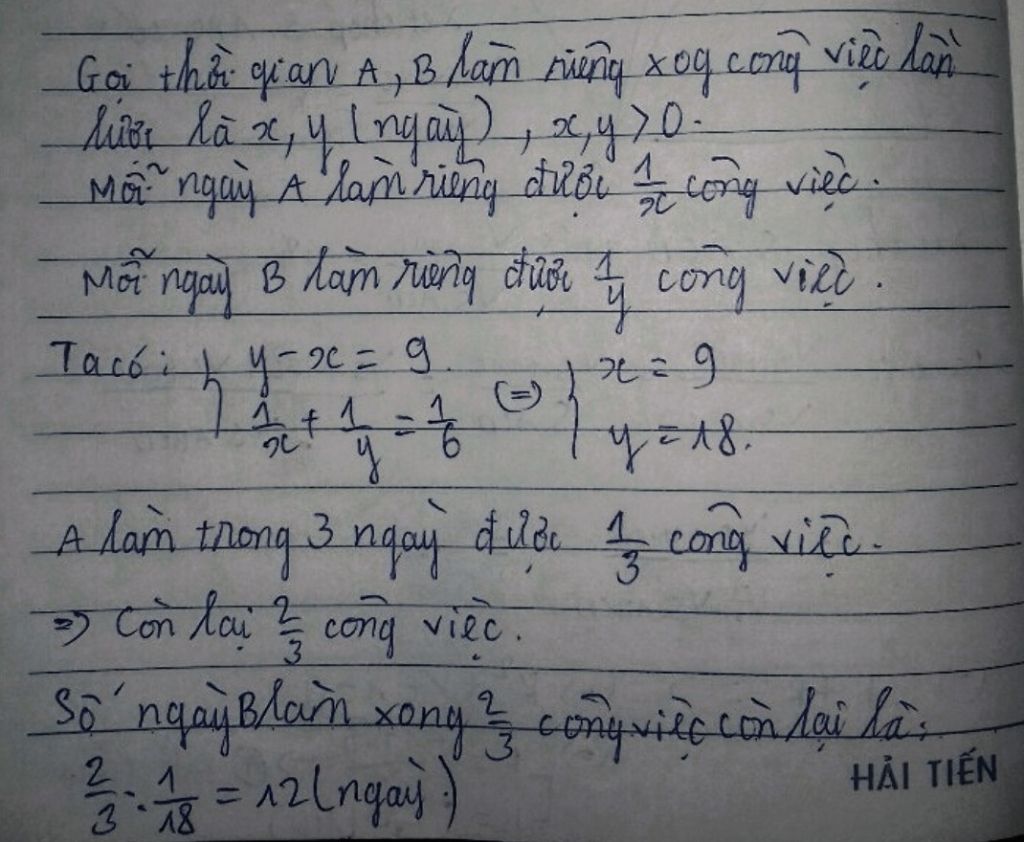 Gọi thời gian A, B làm riêng xog công việc lần
lượt là x, y (ngày), x, y > 0.
Mỗi ngày A làm riêng được 1/x công việc.
Mỗi ngày B làm riêng được 1/y công việc.
Ta có: { y - x = 9. (=) { x = 9
1/x + 1/y = 1/6 y = 18.
A làm trong 3 ngày được 1/3 công việc.
=> Còn lại 2/3 công việc.
Số ngày B làm xong 2/3 công việc còn lại là:
2/3 : 1/18 = 12 (ngày)
HẢI TIẾN